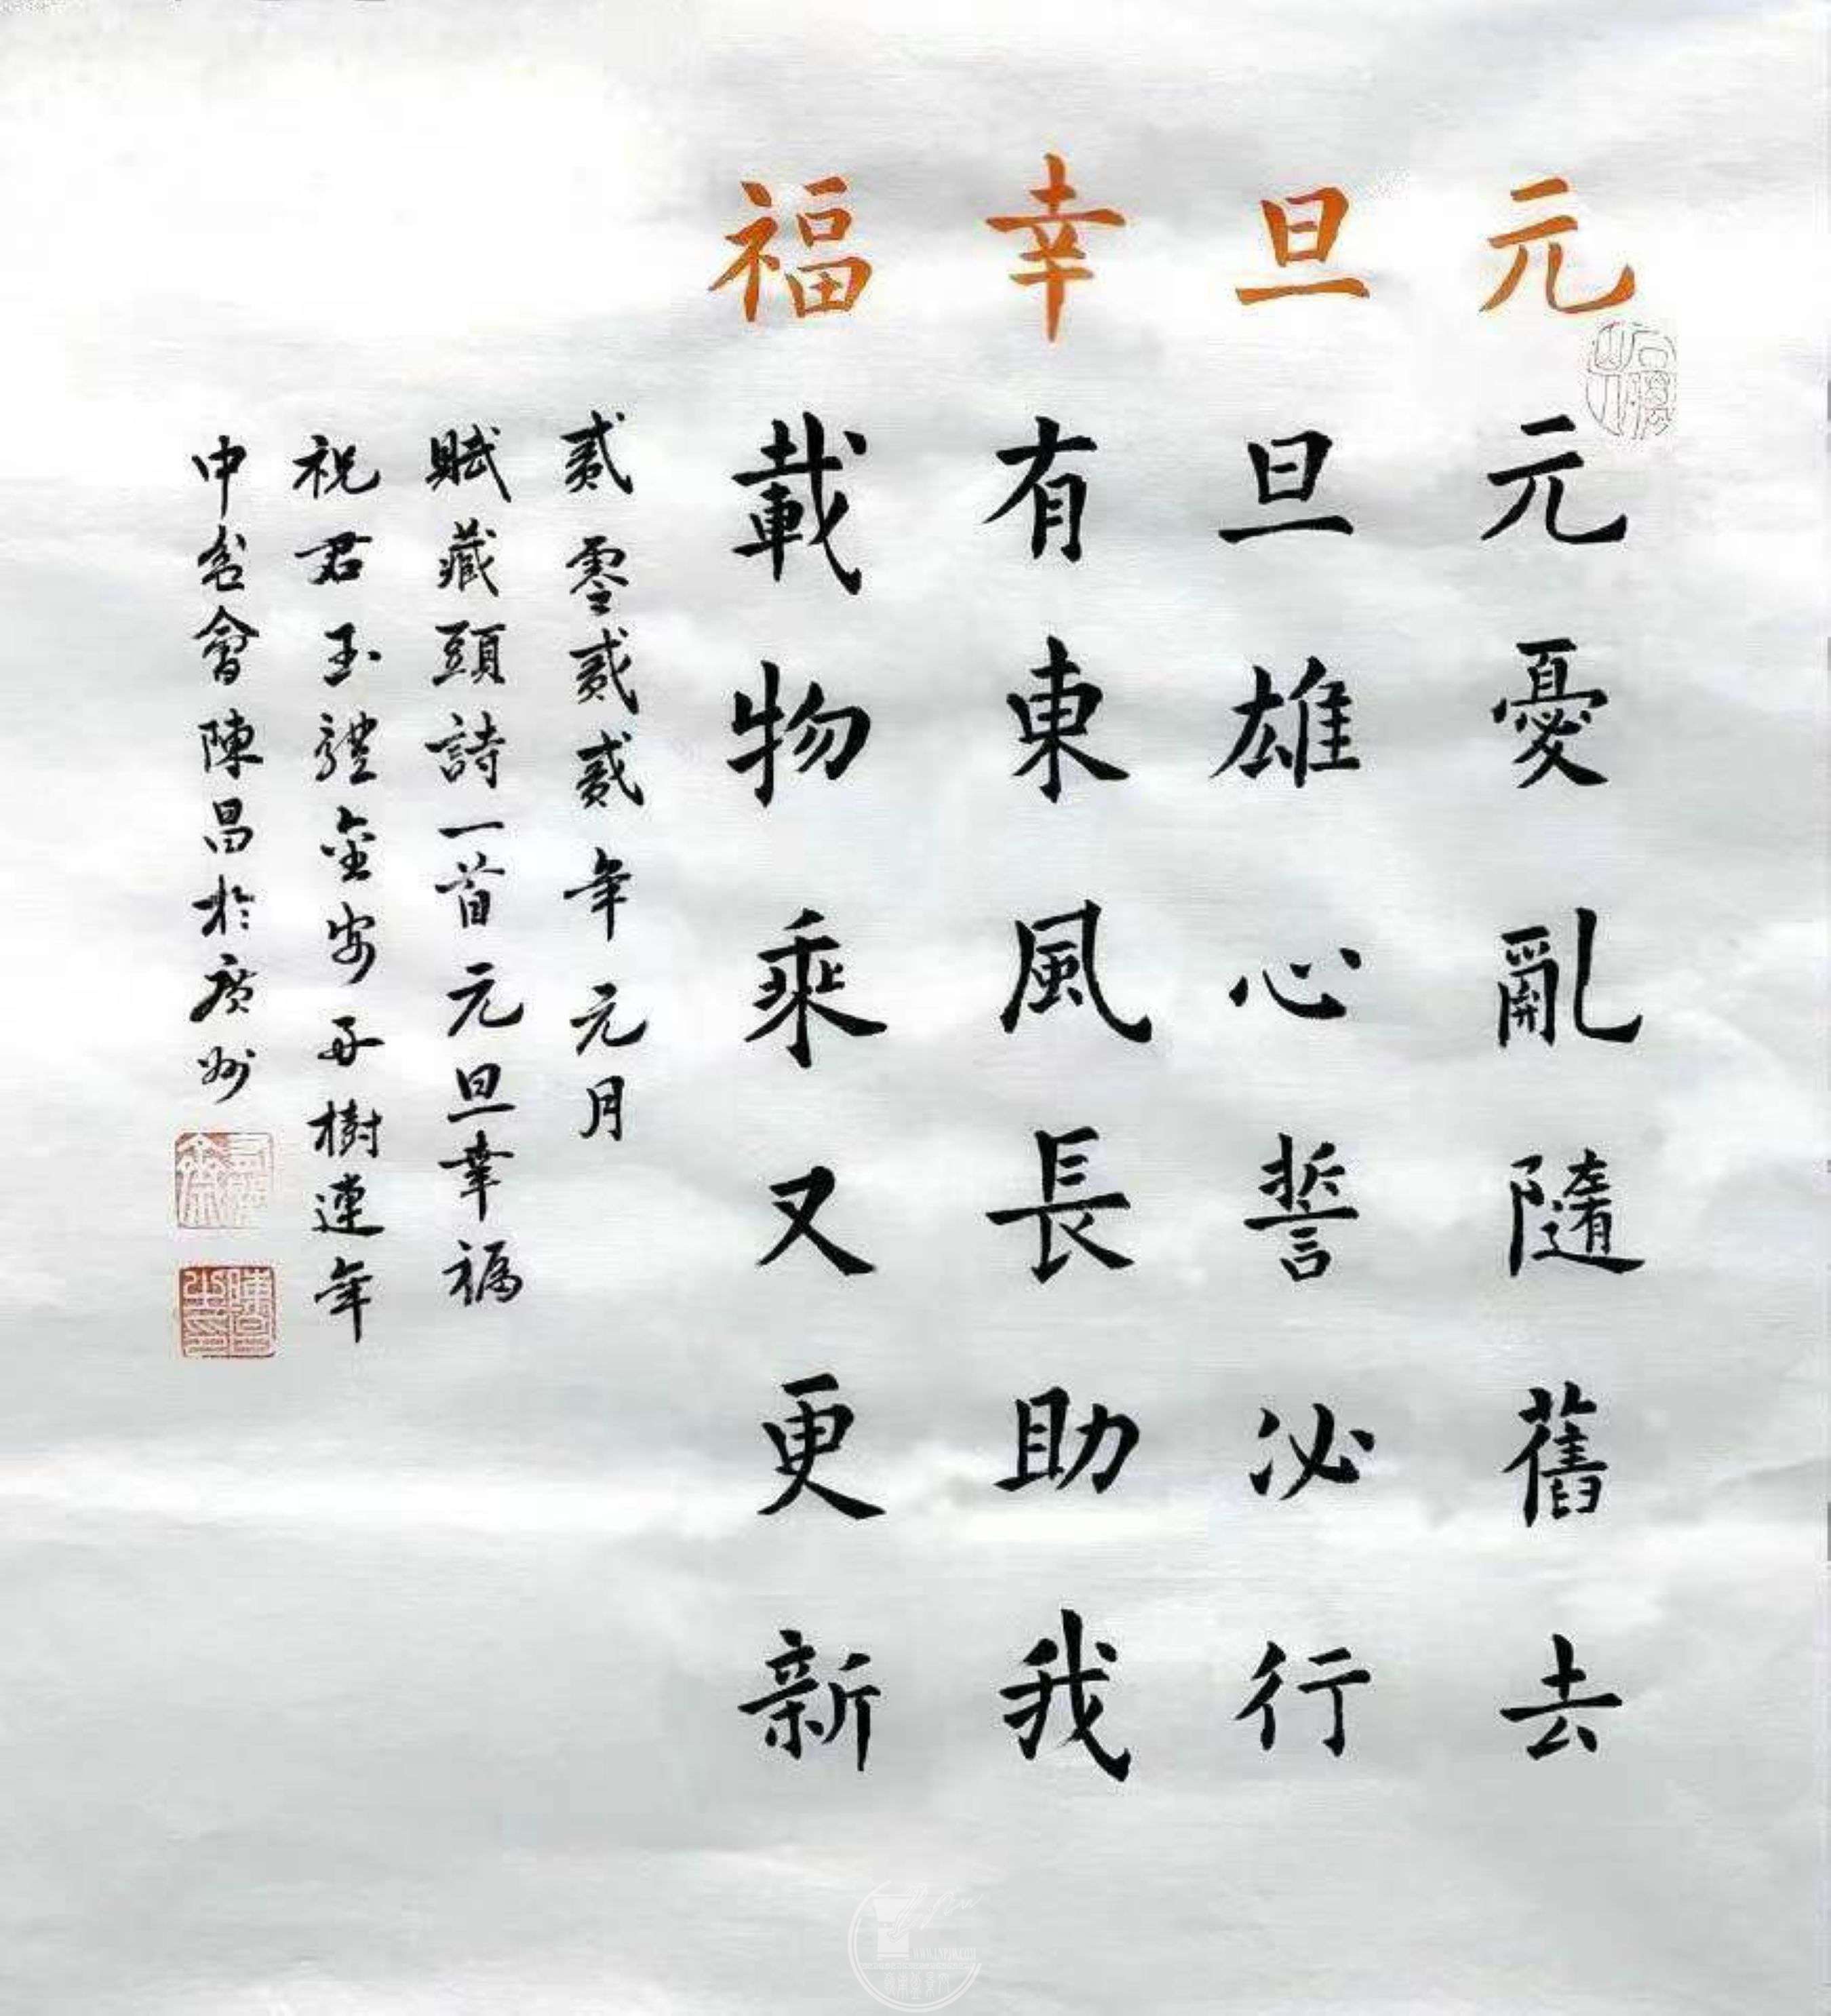 元旦幸福
元憂亂隨舊去
旦雄心誓必行
有東風長助我
載物乘又更新
貳零貳貳年元月
賦藏頭詩一首元旦幸福
祝君玉體金安平樹連年
申城會陳昌於廣州